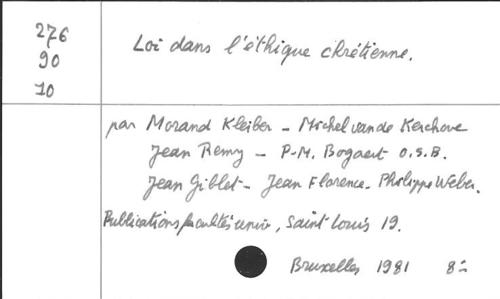 276
90
10
Loi dans l'éthique chrétienne.
par Morand Kleiber - Michel van de Kerchove
Jean Remy - P-M. Bogaert O.S.B.
Jean Giblet - Jean Florence - Philippe Weber.
Publications facultés univ, Saint Louis 19.
Bruxelles 1981 8°